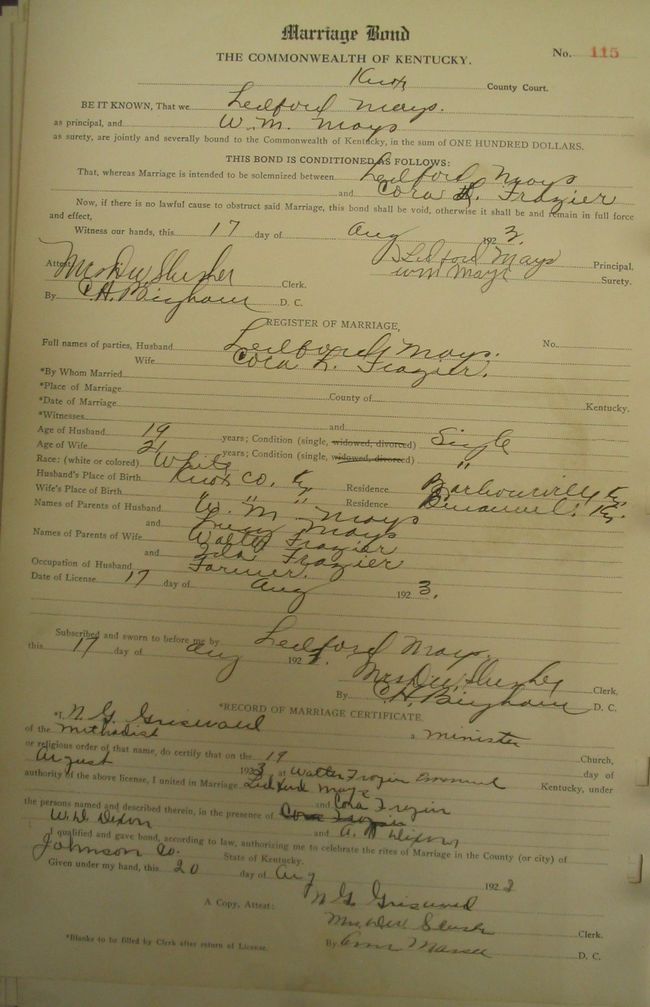 Marriage Bond
THE COMMONWEALTH OF KENTUCKY.
No. 115
Knox County Court.
BE IT KNOWN, That we Ledford Mays.
as principal, and W. M. Mays
as surety, are jointly and severally bound to the Commonwealth of Kentucky, in the sum of ONE HUNDRED DOLLARS.
THIS BOND IS CONDITIONED AS FOLLOWS:
That, whereas Marriage is intended to be solemnized between Ledford Mays
and Cora L. Frazier
Now, if there is no lawful cause to obstruct said Marriage, this bond shall be void, otherwise it shall be and remain in full force
and effect,
Witness our hands, this 17 day of Aug 1923.
Ledford Mays Principal,
Attest Mrs D W Slusher Clerk. Wm Mays Surety.
By C. H. Bingham D. C.
REGISTER OF MARRIAGE,
Full names of parties, Husband Ledford Mays. No.
Wife Cora L. Frazier.
*By Whom Married
*Place of Marriage County of Kentucky.
*Date of Marriage
*Witnesses and
Age of Husband 19 years; Condition (single, widowed, divorced) Single
Age of Wife 21 years; Condition (single, widowed, divorced) "
Race: (white or colored) White
Husband's Place of Birth Knox Co. Ky Residence Barbourville Ky.
Wife's Place of Birth " " " Residence Ky.
Names of Parents of Husband W. M. Mays
and Mays
Names of Parents of Wife Walter Frazier
and Frazier
Occupation of Husband Farmer.
Date of License 17 day of Aug 1923.
Subscribed and sworn to before me by Ledford Mays.
this 17 day of Aug 1923.
Mrs D W Slusher Clerk,
By C. H. Bingham D. C.
*RECORD OF MARRIAGE CERTIFICATE.
*I N. G. Grisward a minister
of the Methodist Church,
or religious order of that name, do certify that on the 19 day of
August 1923 at Walter Frazier Kentucky, under
authority of the above license, I united in Marriage Ledford Mays
and Cora Frazier
the persons named and described therein, in the presence of Cora Frazier
W. D. Dixon and A. Dixon
I qualified and gave bond, according to law, authorizing me to celebrate the rites of Marriage in the County (or city) of
Johnson Co. State of Kentucky.
Given under my hand, this 20 day of Aug 1923
N. G. Grisward
A Copy, Attest: Mrs. D W Slusher Clerk.
*Blanks to be filled by Clerk after return of License.
By D. C.